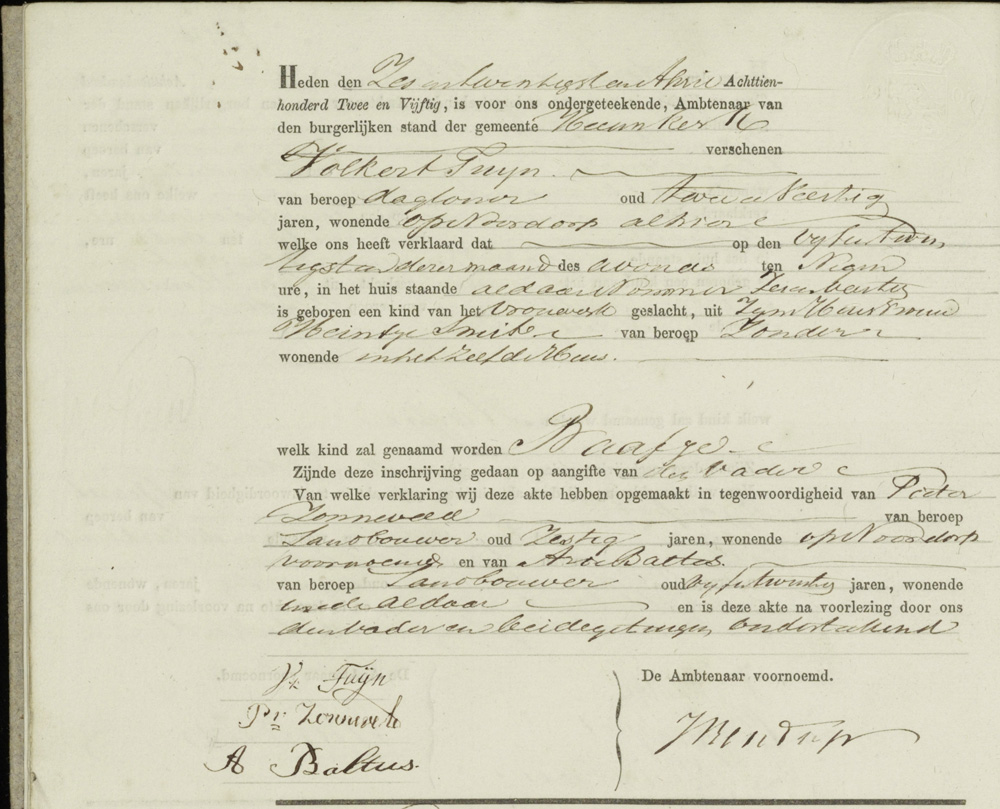 Heden den Zes en twintigsten April Achttien-
honderd Twee en Vijftig, is voor ons ondergeteekende, Ambtenaar van
den burgerlijken stand der gemeente
verschenen
Volkert Tuijn
van beroep daglooner oud twee en Veertig
jaren, wonende op Noordorp alhier
welke ons heeft verklaard dat op den vyf en twin
tigsten dezer maand des avonds ten Negen
ure, in het huis staande aldaar Nommer Zes en Veertig
is geboren een kind van het Vrouwelyk geslacht, uit Zyn Huisvrouw
Neintje Smit van beroep Zonder
wonende in het zelfde Huis.
welk kind zal genaamd worden Baafje
Zijnde deze inschrijving gedaan op aangifte van den Vader
Van welke verklaring wij deze akte hebben opgemaakt in tegenwoordigheid van Pieter
Zonneveld van beroep
Landbouwer oud Zestig jaren, wonende op Noordorp
voornoemd en van Arie Baltus
van beroep Landbouwer oud vyf en twintig jaren, wonende
mede aldaar en is deze akte na voorlezing door ons
den vader en beide getuigen onderteekend
De Ambtenaar voornoemd.
Vt Tuÿn
Pr Zonneveld
A Baltus.